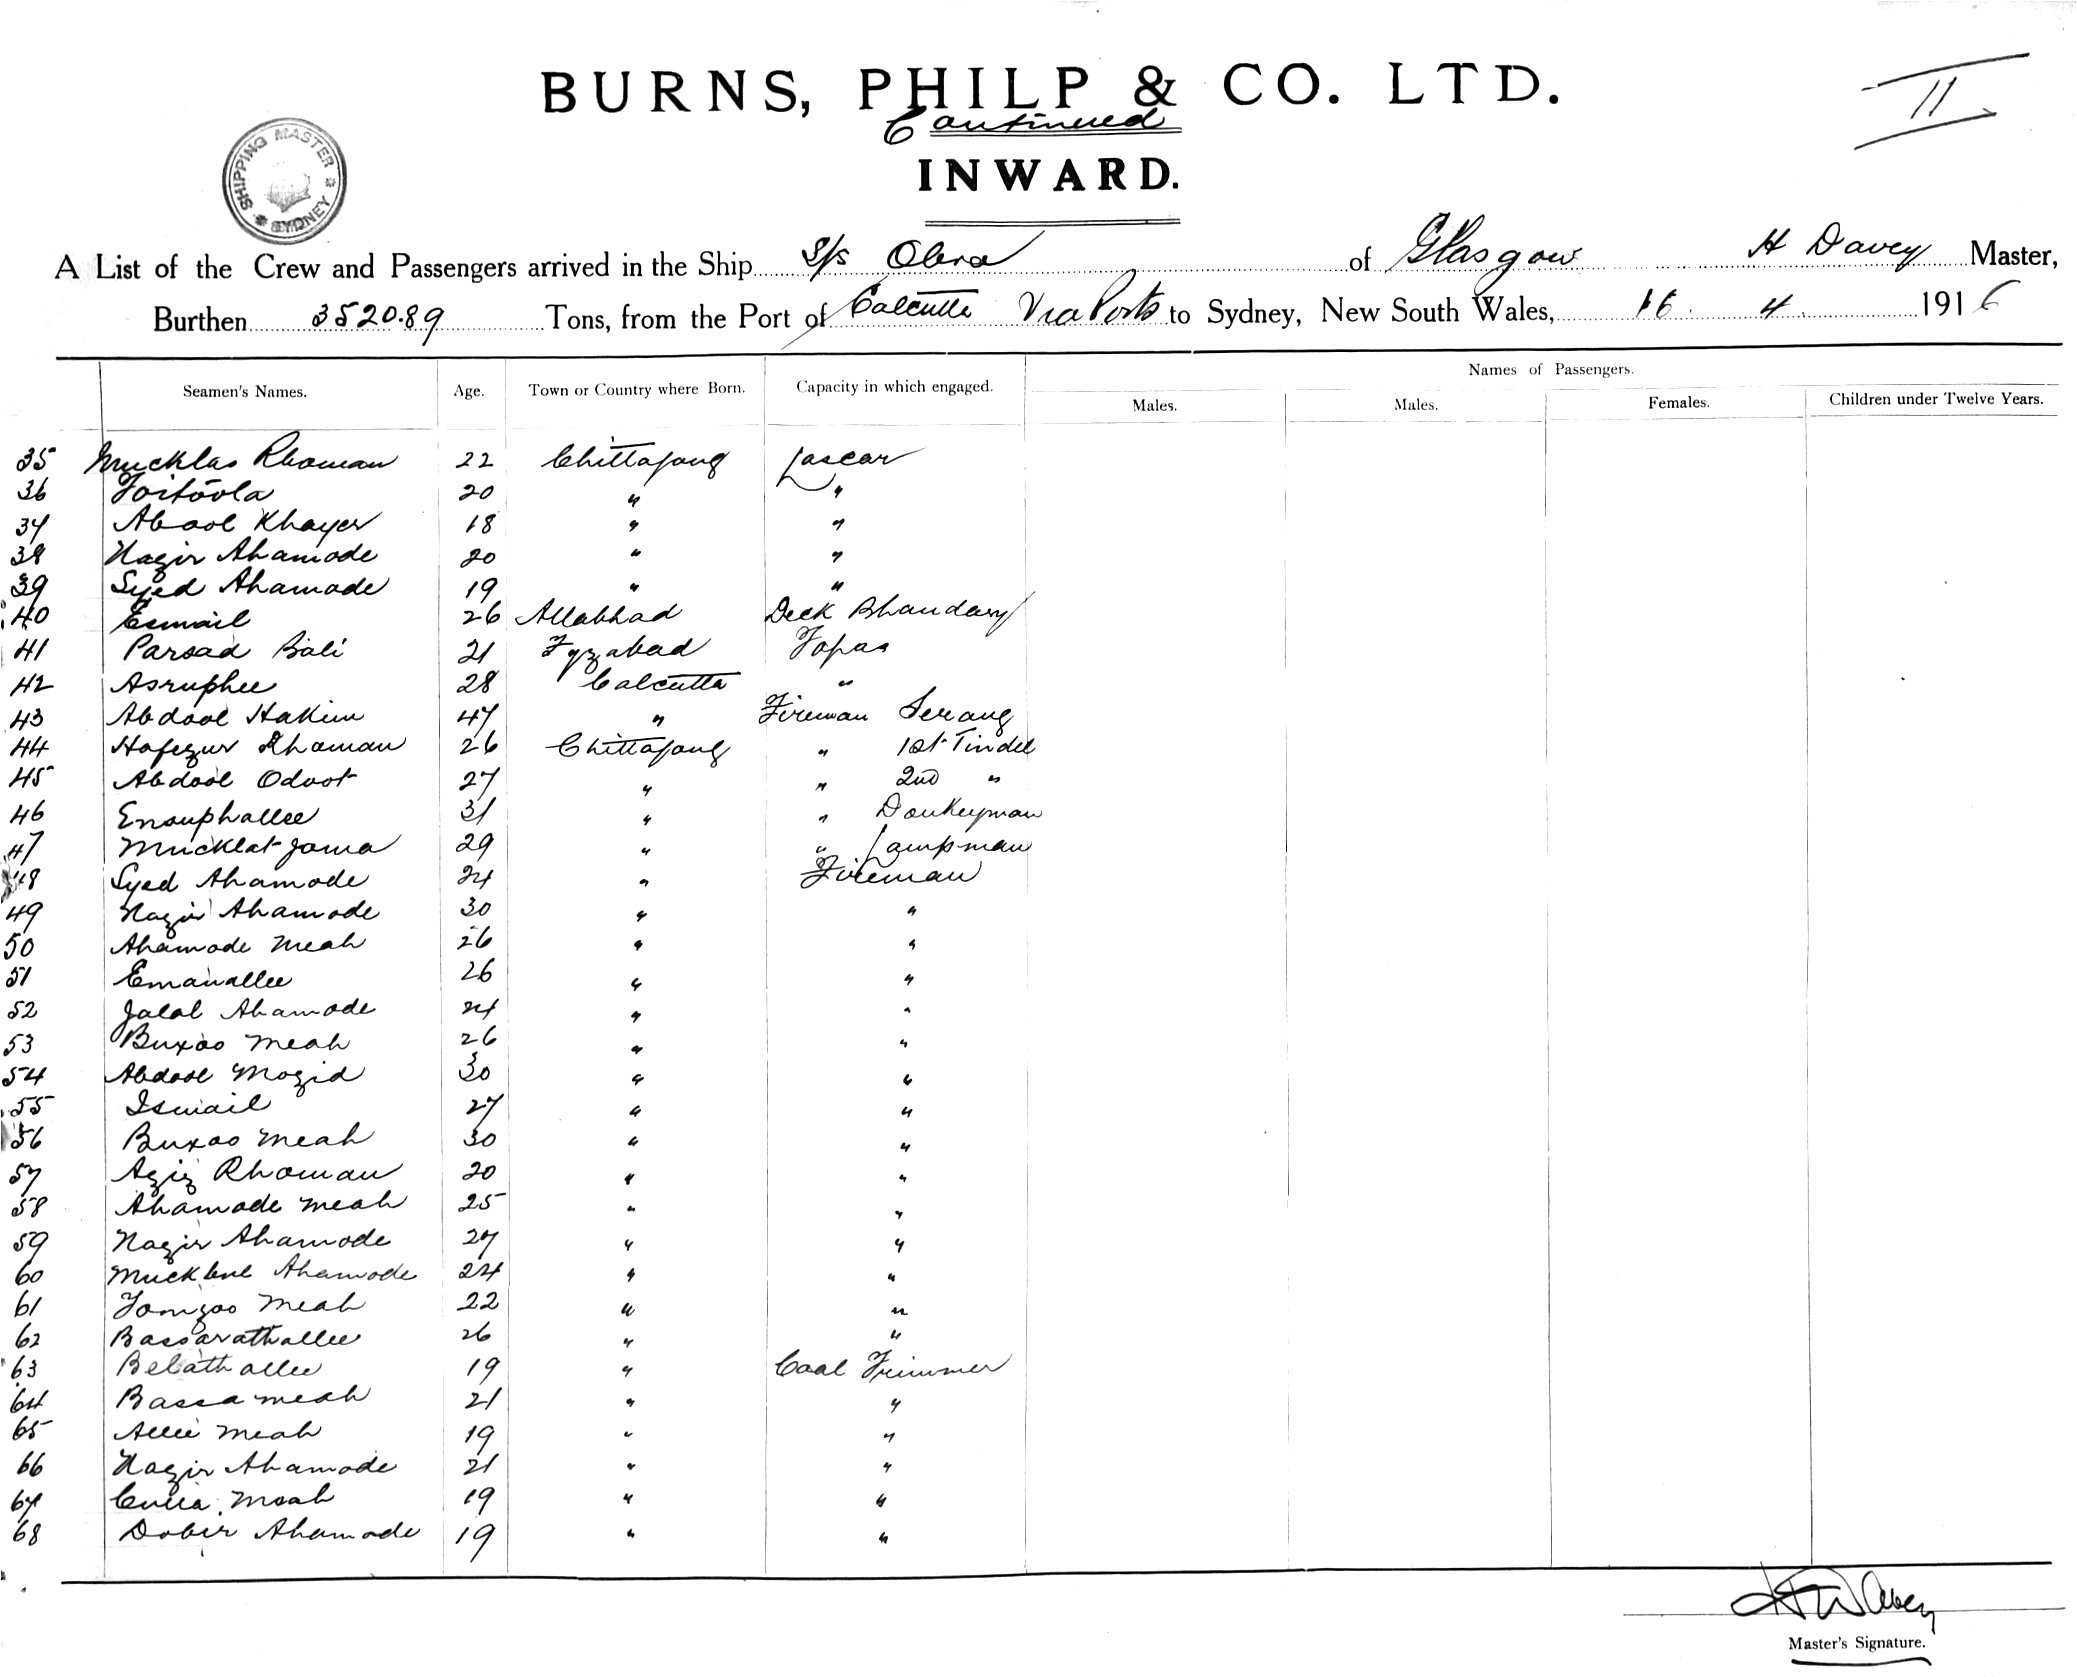 BURNS, PHILP & CO. LTD.
II
Continued
INWARD.
SHIPPING MASTER SYDNEY
A List of the Crew and Passengers arrived in the Ship S/s Obra of Glasgow H Davey Master,
Burthen 3520.89 Tons, from the Port of Calcutta Via Ports to Sydney, New South Wales, 16. 4. 1916
Seamen's Names. Age. Town or Country where Born. Capacity in which engaged. Names of Passengers.
Males. Males. Females. Children under Twelve Years.
35 Mucklas Rhoman 22 Chittagong Lascar
36 20 " "
37 Abool Khayer 18 " "
38 Nazir Ahamode 20 " "
39 Syed Ahamode 19 " "
40 Esmail 26 Allabhad Deck Bhandary
41 Parsad Bali 21 Fyzabad Topas
42 Asruphee 28 Calcutta "
43 Abdool Hakim 47 " Fireman Serang
44 Hafezur Rhoman 26 Chittagong " 1st Tindel
45 Abdool Odoot 27 " " 2nd "
46 Ensuphallee 31 " " Donkeyman
47 Mucklat Joma 29 " " Lampman
48 Syed Ahamode 24 " Fireman
49 Nazir Ahamode 30 " "
50 Ahamode Meah 26 " "
51 Emanallee 26 " "
52 Jalal Ahamode 24 " "
53 Buxoo Meah 26 " "
54 Abdool Mozid 30 " "
55 Ismail 27 " "
56 Buxoo Meah 30 " "
57 Aziz Rhoman 20 " "
58 Ahamode Meah 25 " "
59 Nazir Ahamode 27 " "
60 Ahamode 24 " "
61 Meah 22 " "
62 Bassarathallee 26 " "
63 Belathallee 19 " Coal Trimmer
64 Bassa Meah 21 " "
65 Allee Meah 19 " "
66 Nazir Ahamode 21 " "
67 Meah 19 " "
68 Dobir Ahamode 19 " "
H Davey
Master's Signature.